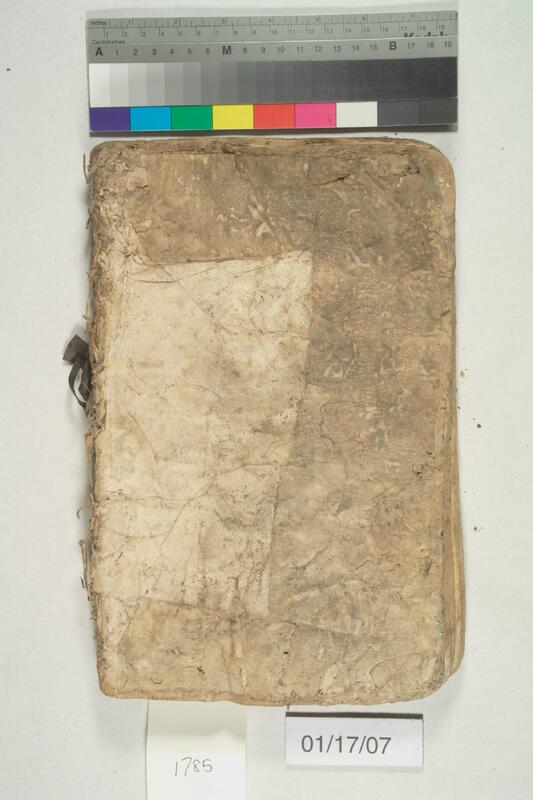 Inches 1 2 3 4 5 6 7
1 2 3 4 5 6 7 8 9 10 11 12 13 14 15 16 17 18 19
Centimetres
A 1 2 3 4 5 6 M 8 9 10 11 12 13 14 15 B 17 18 19
1785
01/17/07